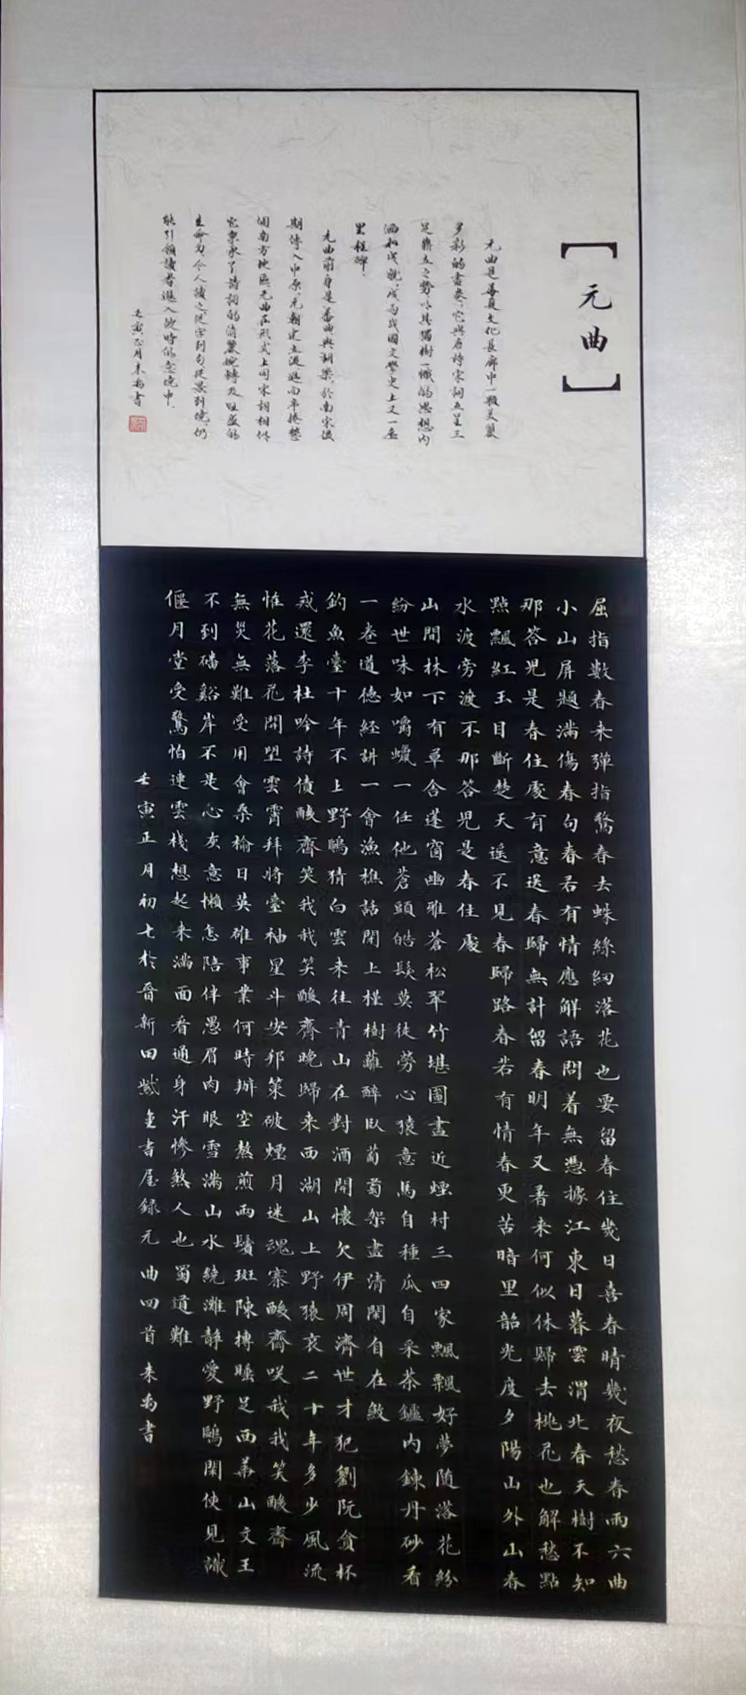 【元曲】
元曲是華夏文化長廊中一顆美麗
多彩的畫卷它與唐詩宋詞呈三
足鼎立之勢以其獨樹一幟的思想內
涵和成就成為我國文學史上又一座
里程碑
元曲前身是蕃曲與胡樂於南宋後
期傳入中原元朝建立後進而席捲整
個南方地區元曲在形式上同宋詞相似
它秉承了詩詞的清麗婉轉及旺盛的
生命力令人讀之從字到句從景到境仍
能引領讀者進入彼時的意境中
壬寅正月來為書
屈指數春來彈指驚春去蛛絲網落花也要留春住幾日喜春晴幾夜愁春雨六曲
小山屏題滿傷春句春若有情應解語問着無憑據江東日暮雲渭北春天樹不知
那答兒是春住處有意送春歸無計留春明年又着來何似休歸去桃花也解愁點
點飄紅玉目斷楚天遙不見春歸路春若有情春更苦暗里韶光度夕陽山外山春
水渡旁渡不那答兒是春住處
山間林下有草舍蓬窗幽雅蒼松翠竹堪圖畫近煙村三四家飄飄好夢隨落花紛
紛世味如嚼蠟一任他蒼頭皓髮莫徒勞心猿意馬自種瓜自采茶鑪內鍊丹砂看
一卷道德經講一會漁樵話閉上槿樹蘺醉臥葫蘆架盡清閑自在煞
釣魚臺十年不上野鷗猜白雲來往青山在對酒開懷欠伊周濟世才犯劉阮貪杯
戒還李杜吟詩債酸齋笑我我笑酸齋晚歸來西湖山上野猿哀二十年多少風流
怪花落花開望雲霄拜將臺袖星斗安邦策破煙月迷魂寨酸齋咲我我笑酸齋
無災無難受用會桑榆日英雄事業何時辦空熬煎兩鬢斑陳摶睡足西華山文王
不到磻谿岸不是心灰意懶怎陪伴愚眉肉眼雪滿山水繞灘靜愛野鷗閑使見識
偃月堂受驚怕連雲棧想起來滿面看通身汗慘煞人也蜀道難
壬寅正月初七於晉新田紫金書屋錄元曲四首來為書